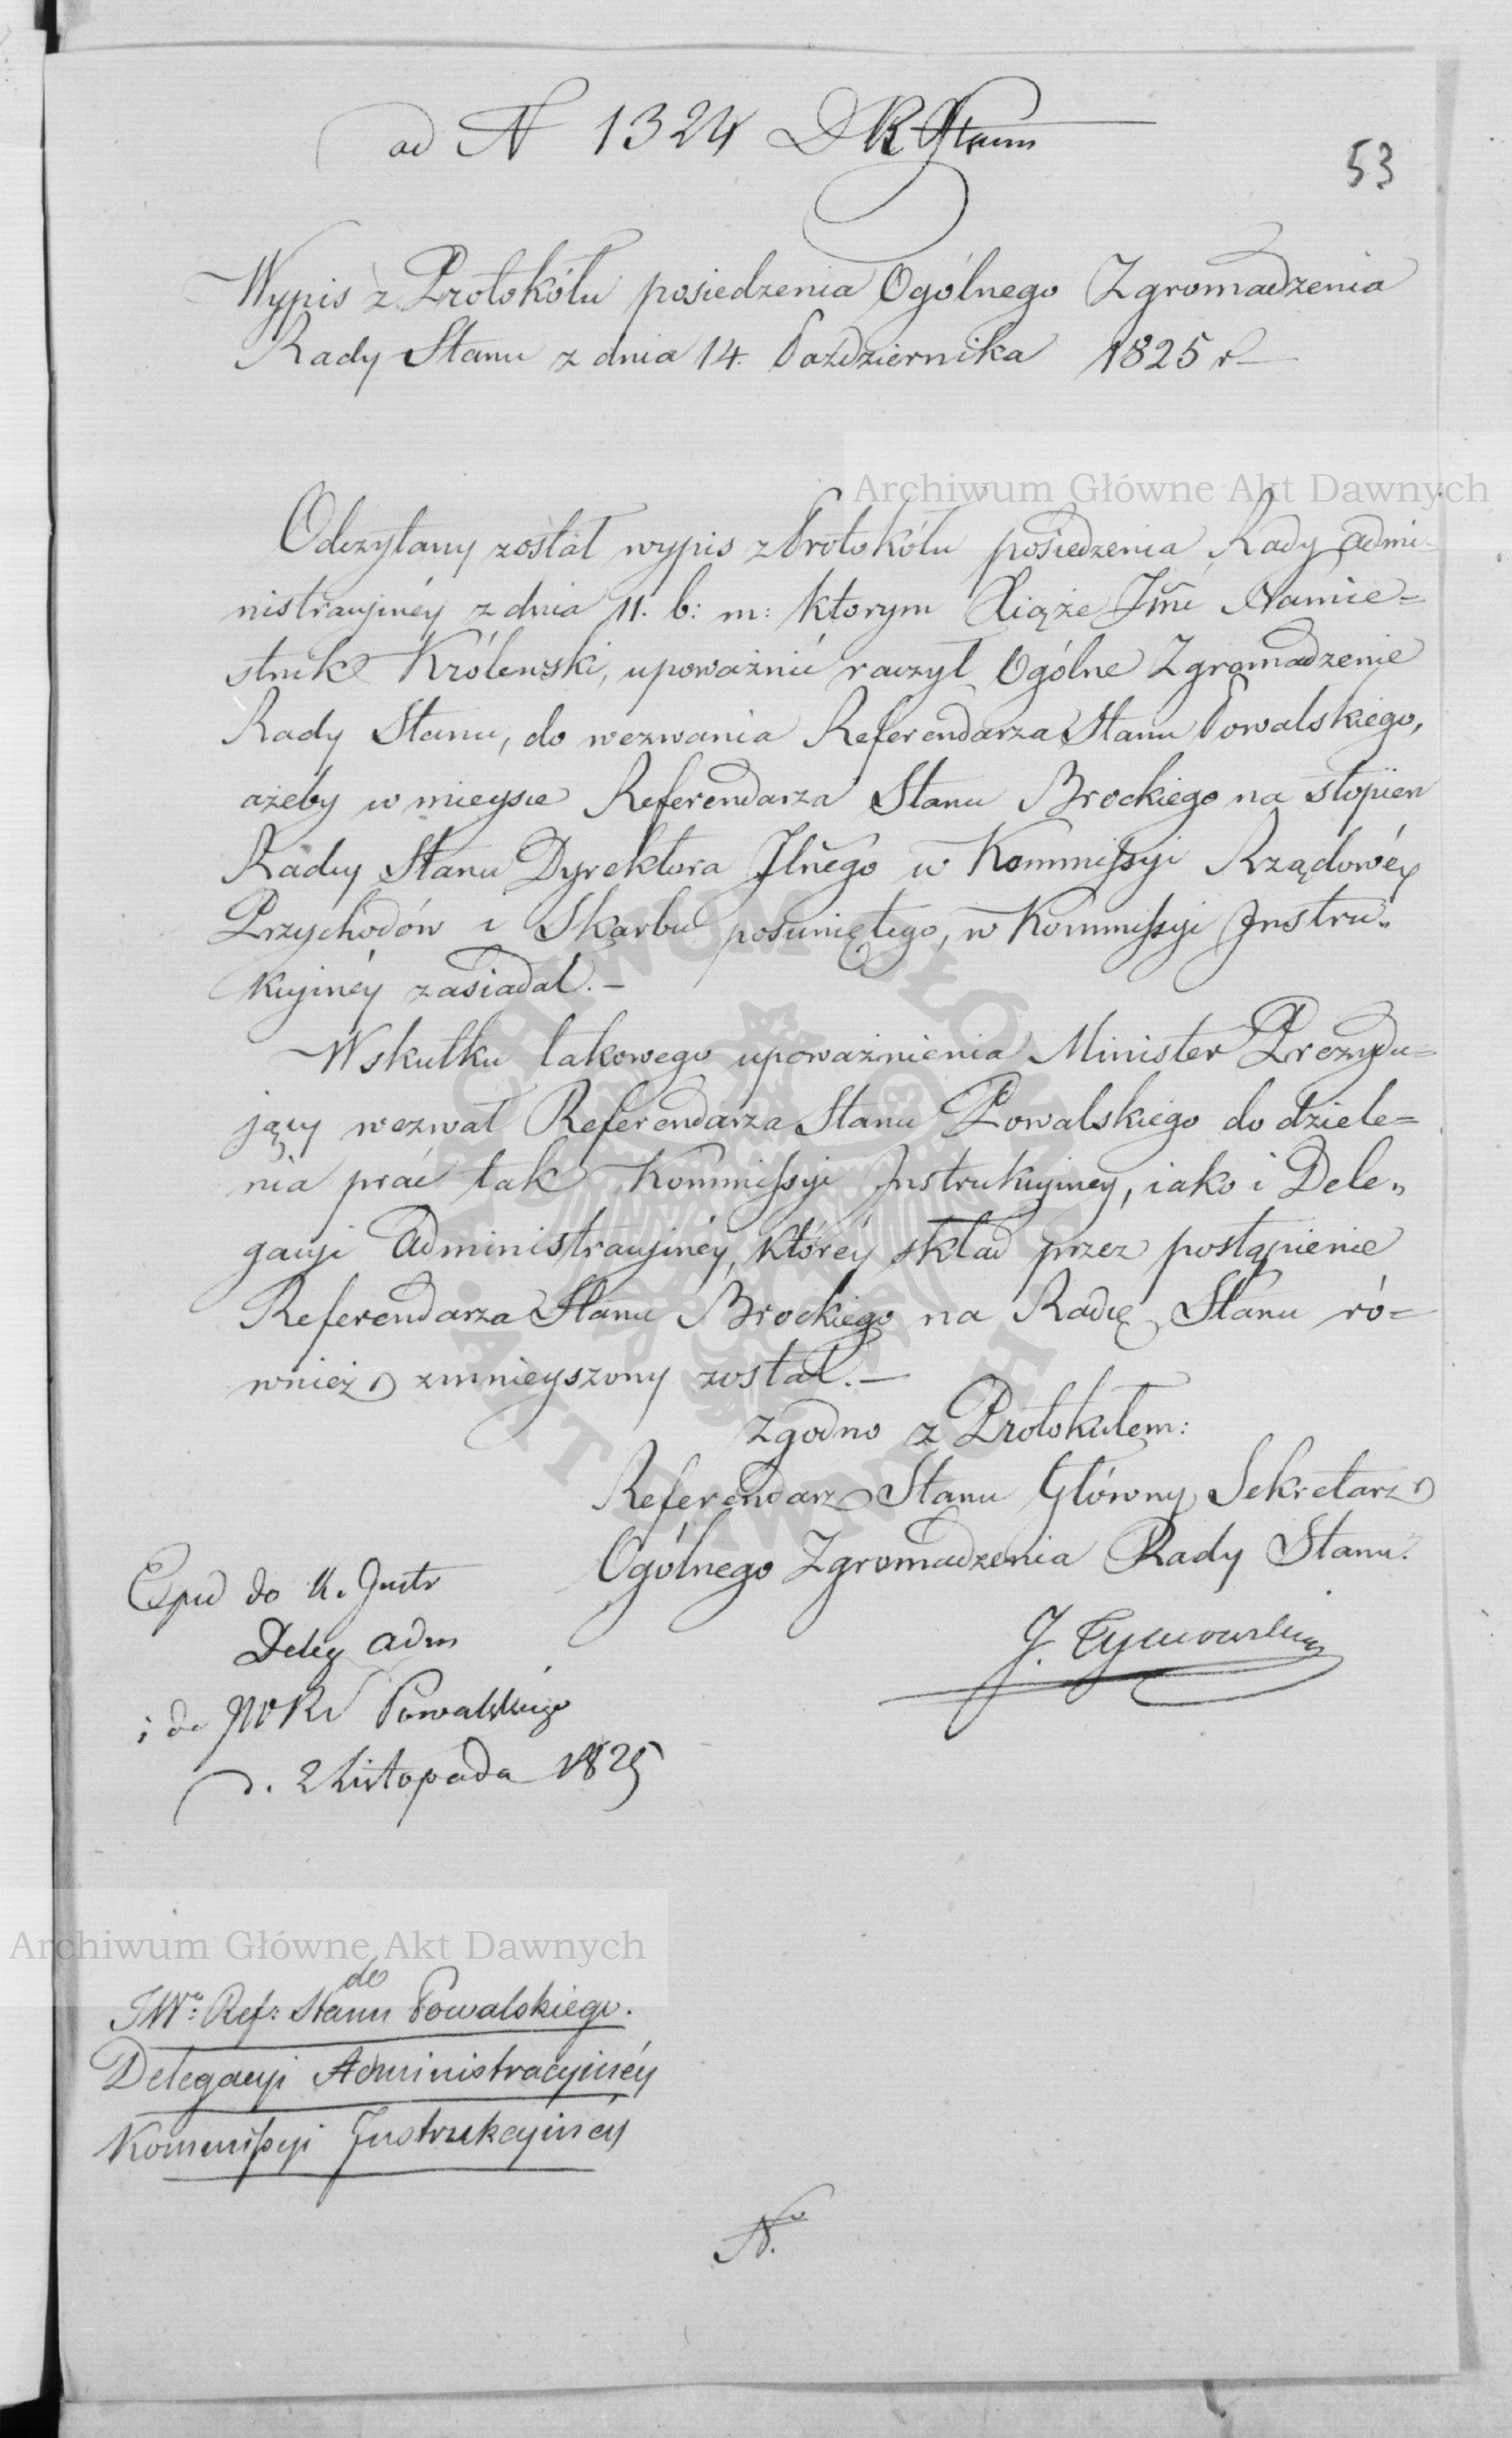 ad N 1324 D R Stanu
53
Wypis z Protokółu posiedzenia Ogólnego Zgromadzenia
Rady Stanu z dnia 14. Października 1825 r
Archiwum Główne Akt Dawnych
Odczytany został wypis z Protokółu posiedzenia Rady admi-
nistracyjnéy z dnia 11. b: m: ktorym Xiąże Jmć Namie=
stnik Królewski, upoważnić raczył Ogólne Zgromadzenie
Rady Stanu, do wezwania Referendarza Stanu Powalskiego,
ażeby w mieysce Referendarza Stanu Brockiego na stopień
Radcy Stanu Dyrektora Jlnego w Kommissyi Rządowéy
Przychodów i Skarbu posuniętego, w Kommissyi Instru„
kcyjnéy zasiadał.—
W skutku takowego upoważnienia Minister Prezydu=
jący wezwał Referendarza Stanu Powalskiego do dziele=
nia prac tak Kommissyi Instrukcyjney, iako i Dele„
gacyi Administracyjnéy, któréy skład przez postąpienie
Referendarza Stanu Brockiego na Radcę Stanu ró=
wnież zmnieyszony został.—
Zgodno z Protokułem:
Referendarz Stanu Główny Sekretarz
Ogólnego Zgromadzenia Rady Stanu.
J. Tymowski
Exped do K. Instr
Deleg adm
i do JWR Powalskiego
d. 2 Listopada 1825
Archiwum Główne Akt Dawnych
do
JWo: Ref: Stanu Powalskiego.
Delegacyi Administracyinéy
Kommissyi Instrukcyinéy
No.
ARCHIWUM GŁÓWNE AKT DAWNYCH